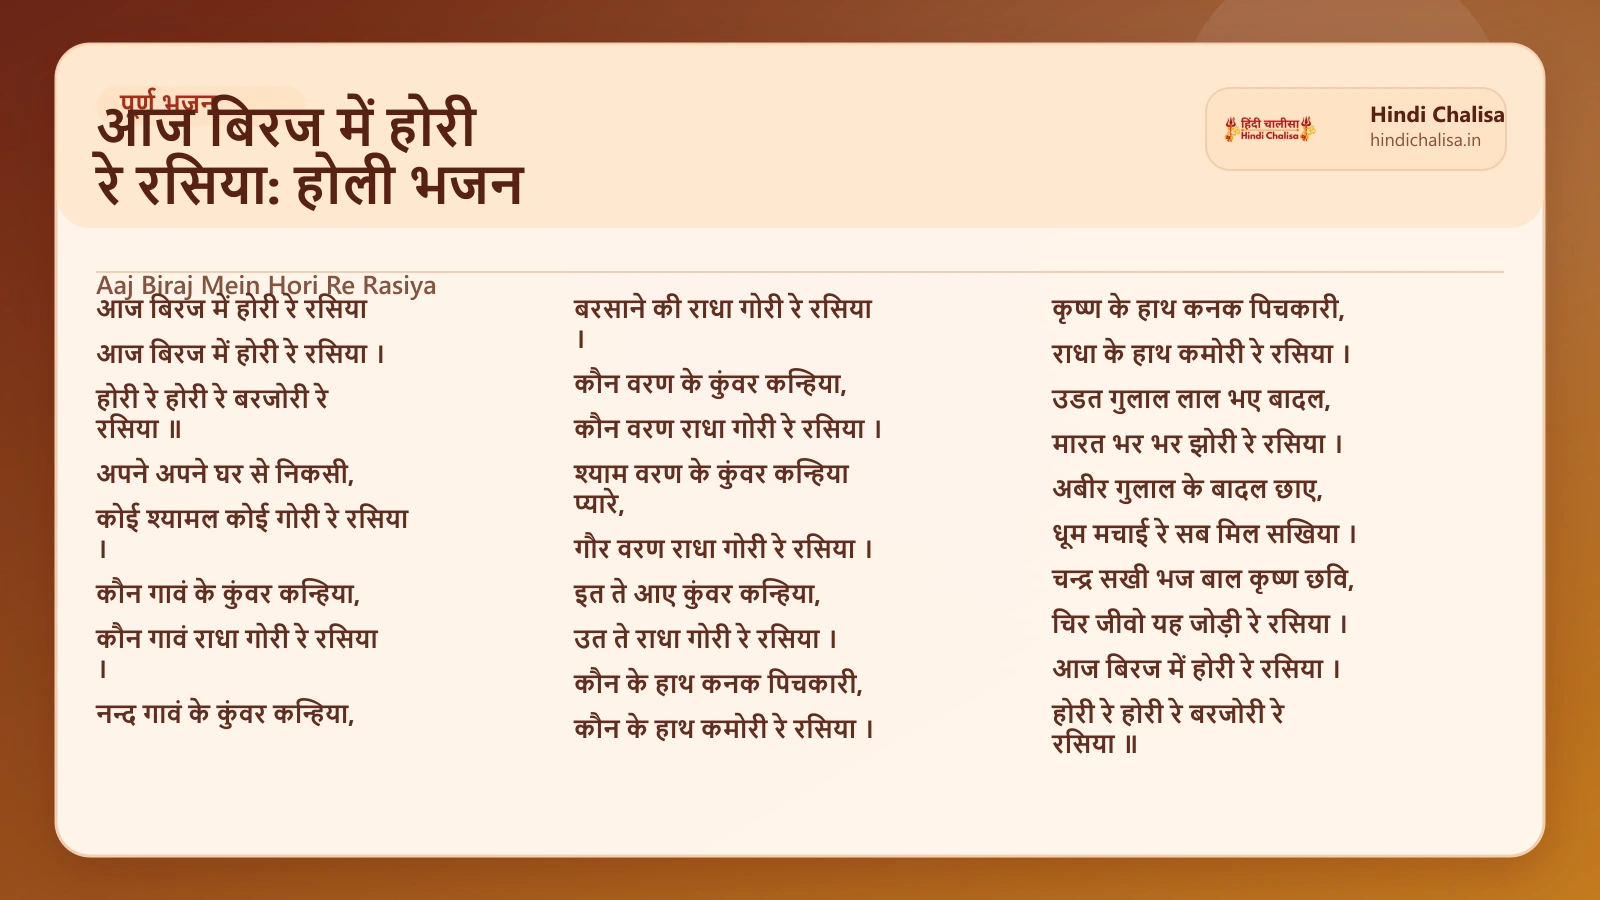 पूर्ण भजन
आज बिरज में होरी
रे रसिया: होली भजन
हिंदी चालीसा
Hindi Chalisa
Hindi Chalisa
hindichalisa.in
Aaj Biraj Mein Hori Re Rasiya
आज बिरज में होरी रे रसिया
आज बिरज में होरी रे रसिया ।
होरी रे होरी रे बरजोरी रे
रसिया ॥
अपने अपने घर से निकसी,
कोई श्यामल कोई गोरी रे रसिया
।
कौन गावं के कुंवर कन्हिया,
कौन गावं राधा गोरी रे रसिया
।
नन्द गावं के कुंवर कन्हिया,
बरसाने की राधा गोरी रे रसिया
।
कौन वरण के कुंवर कन्हिया,
कौन वरण राधा गोरी रे रसिया ।
श्याम वरण के कुंवर कन्हिया
प्यारे,
गौर वरण राधा गोरी रे रसिया ।
इत ते आए कुंवर कन्हिया,
उत ते राधा गोरी रे रसिया ।
कौन के हाथ कनक पिचकारी,
कौन के हाथ कमोरी रे रसिया ।
कृष्ण के हाथ कनक पिचकारी,
राधा के हाथ कमोरी रे रसिया ।
उडत गुलाल लाल भए बादल,
मारत भर भर झोरी रे रसिया ।
अबीर गुलाल के बादल छाए,
धूम मचाई रे सब मिल सखिया ।
चन्द्र सखी भज बाल कृष्ण छवि,
चिर जीवो यह जोड़ी रे रसिया ।
आज बिरज में होरी रे रसिया ।
होरी रे होरी रे बरजोरी रे
रसिया ॥